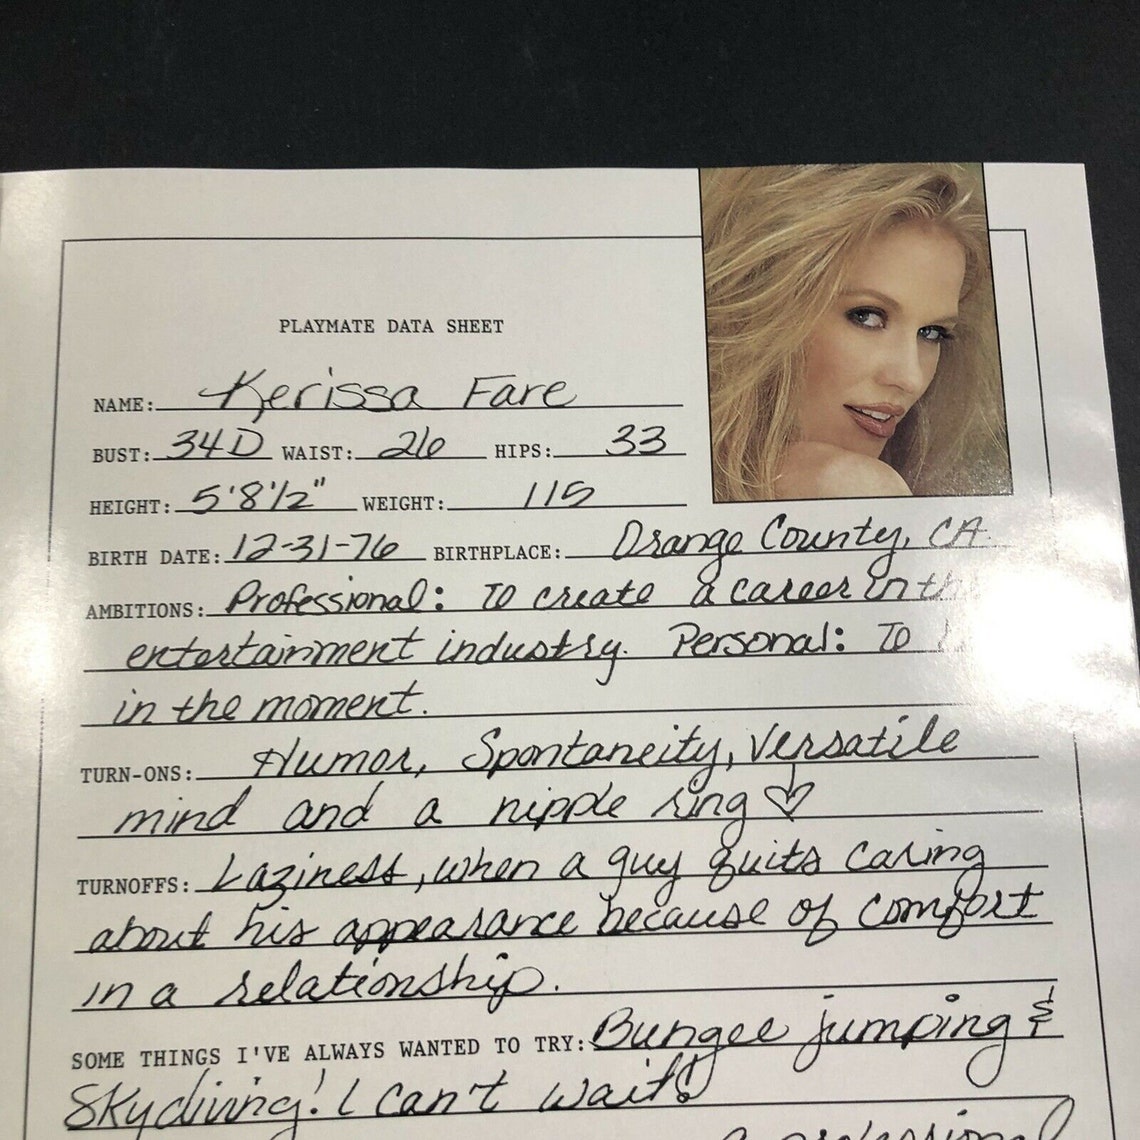 PLAYMATE DATA SHEET
NAME: Kerissa Fare
BUST: 34D WAIST: 26 HIPS: 33
HEIGHT: 5'8 1/2" WEIGHT: 115
BIRTH DATE: 12-31-76 BIRTHPLACE: Orange County, CA.
AMBITIONS: Professional: To create a career in the
entertainment industry. Personal: To
in the moment.
TURN-ONS: Humor, Spontaneity, Versatile
mind and a nipple ring ♡
TURNOFFS: Laziness, when a guy quits caring
about his appearance because of comfort
in a relationship.
SOME THINGS I'VE ALWAYS WANTED TO TRY: Bungee jumping &
Skydiving! I can't wait!
a professional